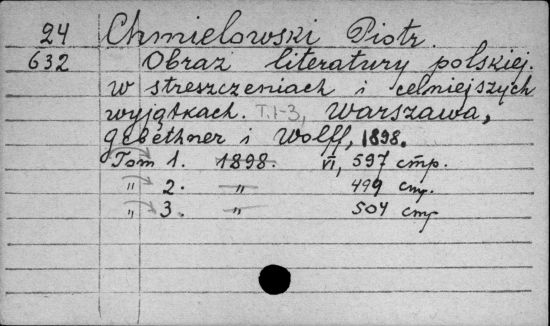 24 Chmielowski Piotr.
632 Obraz literatury polskiej.
w streszczeniach i celniejszych
wyjątkach. T.1-3, Warszawa,
gebethner i Wolff, 1898.
Tom 1. 1898. VI, 597 стр.
" 2. " 499 стр.
" 3. " 504 стр